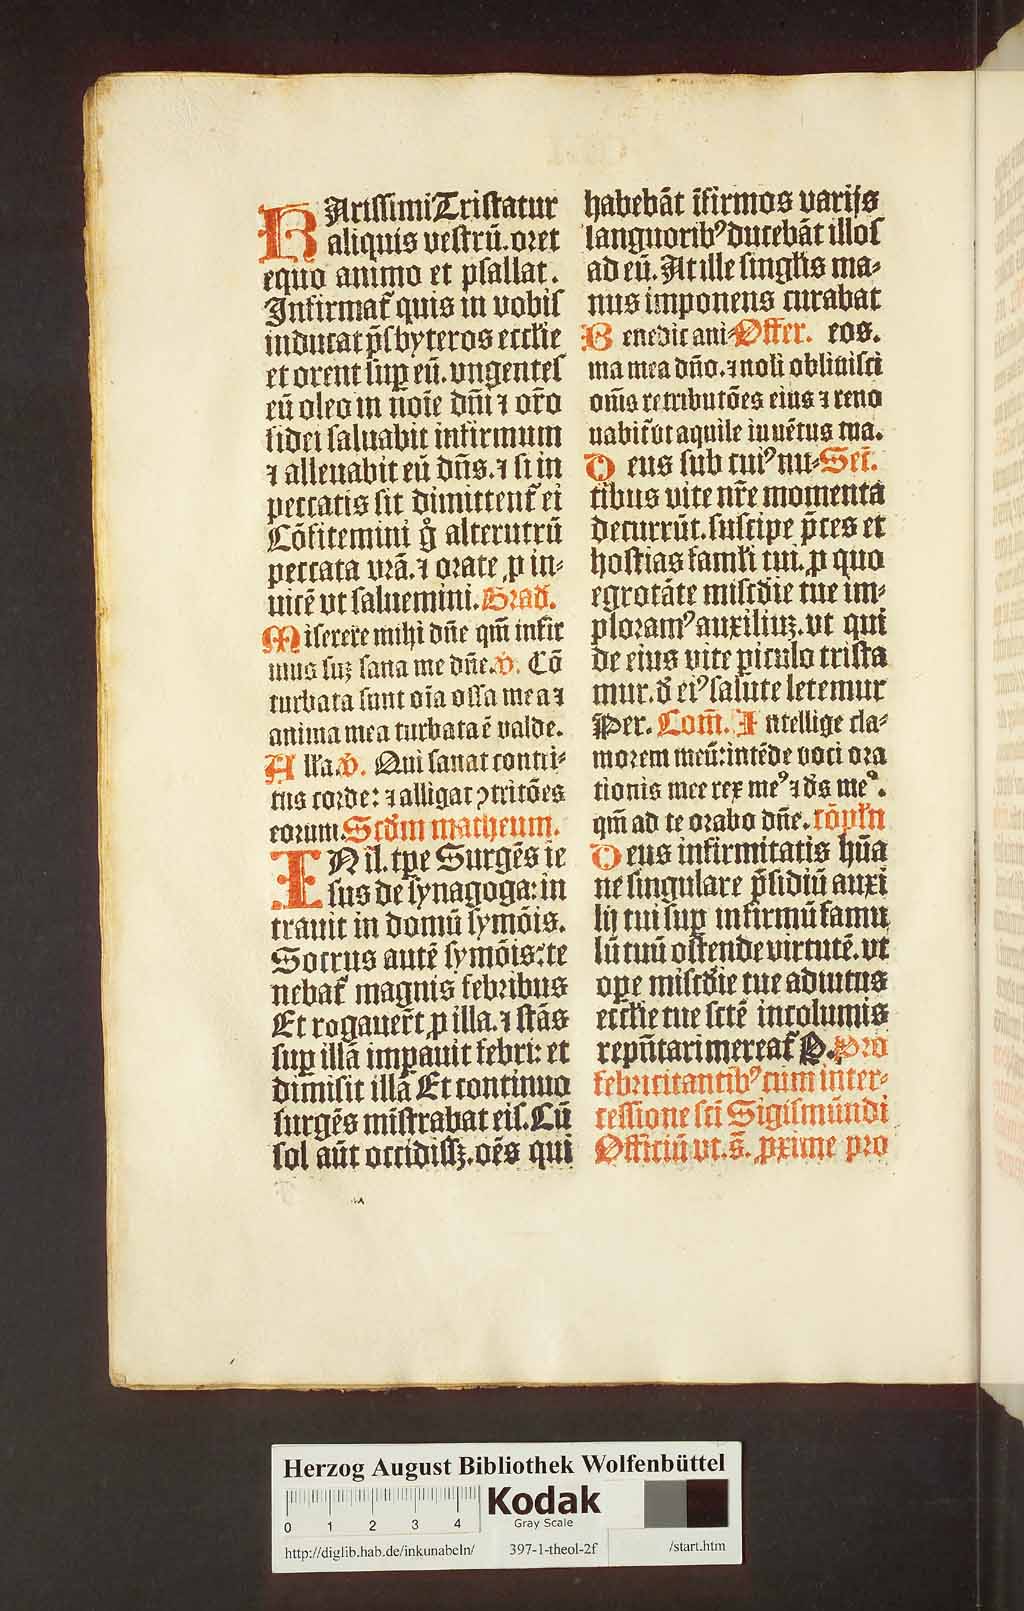 KArissimi Tristatur
aliquis vestrū. oret
equo animo et psallat.
Infirmat᷑ quis in vobis
inducat p̄sbyteros eccłie
et orent sup eū. vngentes
eū oleo in noīe dn̄i ⁊ or̄o
fidei saluabit infirmum
⁊ alleuabit eū dn̄s. ⁊ si in
peccatis sit dimittent᷑ ei
Cōfitemini g̊ alterutrū
peccata vr̄a. ⁊ orate ꝓ in-
uicē vt saluemini. Grad᷑.
Miserere mihi dn̄e qm̄ infir
mus suꝫ sana me dn̄e. v̄. Cō
turbata sunt oīa ossa mea ⁊
anima mea turbata ē valde.
Alła. v̄. Qui sanat contri-
tus corde: ⁊ alligat ꝯtritōes
eorum. Scd̄m matheum.
IN il. tp̄e Surgēs ie
sus de synagoga: in
trauit in domū symōis.
Socrus autē symōis: te
nebat᷑ magnis febribus
Et rogauer̄t ꝓ illa. ⁊ stās
sup illā impauit febri: et
dimisit illā Et continuo
surgēs mīstrabat eis. Cū
sol aūt occidissꝫ. oēs qui
habebāt īfirmos varijs
languoribꝰ ducebāt illos
ad eū. At ille singłis ma-
nus imponens curabat
Benedic ani- Offer. eos.
ma mea dn̄o. ⁊ noli obliuisci
om̄s retributōes eius ⁊ reno
uabit᷑ vt aquile iuuētus tua.
Deus sub cuiꝰ nu- Sec̄.
tibus vite nr̄e momenta
decurrūt. suscipe p̄ces et
hostias famłi tui. ꝓ quo
egrotāte misc̄die tue im-
ploramꝰ auxiliuꝫ. vt qui
de eius vite piculo trista
mur. d̄ eiꝰ salute letemur
Per. Com̄. Intellige cla-
morem meū: intēde voci ora
tionis mee rex meꝰ ⁊ d̄s meꝰ.
qm̄ ad te orabo dn̄e. cōpłn
Deus infirmitatis hūa
ne singulare p̄sidiū auxi
lij tui sup infirmū famu
lū tuū ostende virtutē. vt
ope misc̄die tue adiutus
eccłie tue sctē incolumis
rep̄ntari mereat᷑ P. Pro
febricitantibꝰ cum inter-
cessione sc̄i Sigismūndi
Officiū vt. s̄. ꝓxime pro
Herzog August Bibliothek Wolfenbüttel
0 1 2 3 4
Kodak
Gray Scale
http://diglib.hab.de/inkunabeln/ 397-1-theol-2f /start.htm